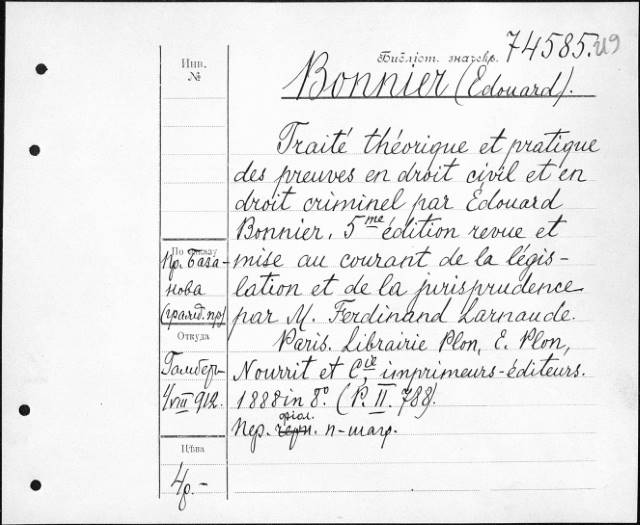 Инв.
№
Библіот. значекъ. 74585. из
Bonnier (Edouard).
Traité théorique et pratique
des preuves en droit civil et en
droit criminel par Édouard
Bonnier. 5me édition revue et
mise au courant de la légis-
lation et de la jurisprudence
par M. Ferdinand Larnaude.
Paris. Librairie Plon, E. Plon,
Nourrit et Cie, imprimeurs-éditeurs.
1888 in 8º. (P. II. 788).
Пер. фіол. п-марг.
По
Пр. База-
нова
(гражд. пр)
Откуда
4/VIII 912.
Цѣна
4р.-